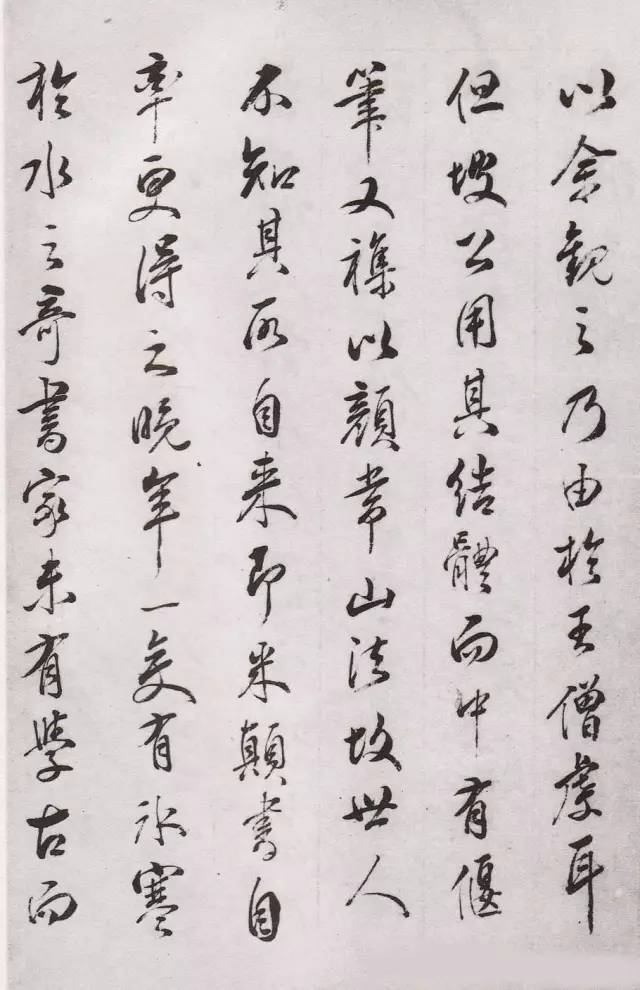 以余觀之乃由於王僧虔耳
但坡公用其結體而中有偃
筆又襍以顏常山法故世人
不知其所自来即米顛書自
率更得之晚年一変有冰寒
於水之奇書家未有學古而